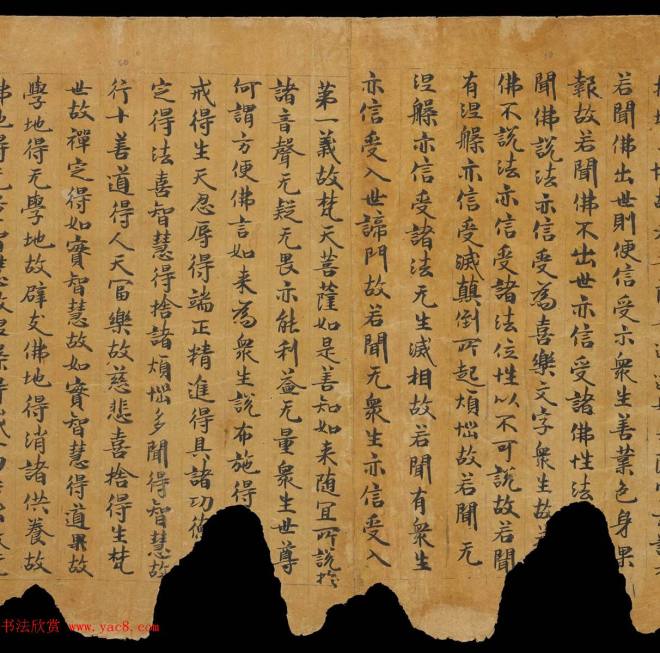 若聞佛出世則便信受示衆生善業色身果
報故若聞佛不出世亦信受諸佛性法
聞佛說法亦信受為喜樂文字衆生故
佛不說法亦信受諸法位性以不可說故若聞
有涅槃亦信受滅顛倒所起煩惱故若聞无
涅槃亦信受諸法无生滅相故若聞有衆生
亦信受入世諦門故若聞无衆生亦信受入
第一義故梵天菩薩如是善知如来随宜所說於
諸音聲无疑无畏亦能利益无量衆生世尊
何謂方便佛言如来為衆生說布施得
戒得生天忍辱得端正精進得具諸功德
定得法喜智慧得捨諸煩惱多聞得智慧故
行十善道得人天冨樂故慈悲喜捨得生梵
世故禪定得如實智慧故如實智慧得道果故
學地得无學地故辟支佛地得消諸供養故
书法欣赏 www.yac8.com